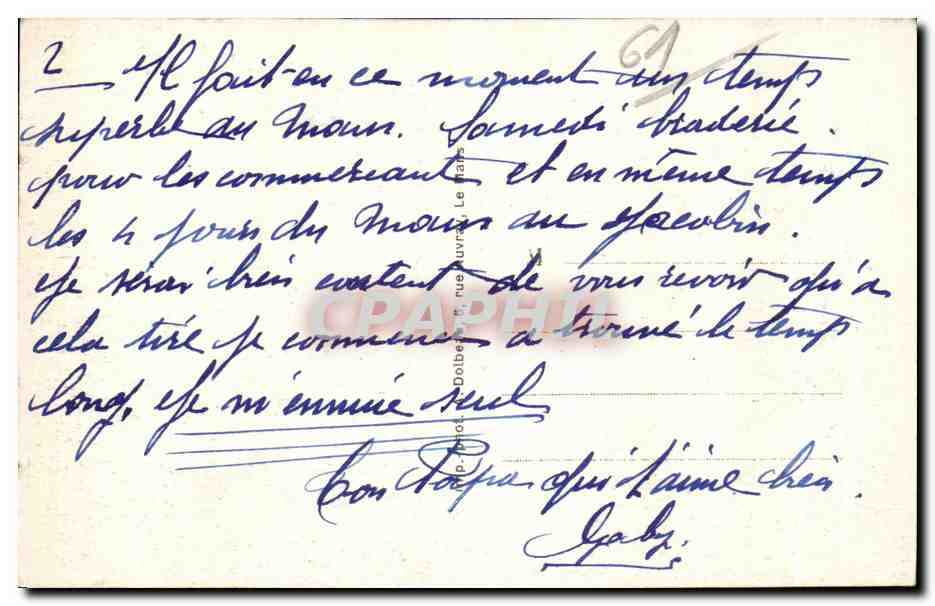 61
2 Il fait en ce moment un temps
superbe au Mans. Samedi braderie.
pour les commercants et en même temps
les 4 jours du Mans au Jacobin.
Je serai bien content de vous revoir qu'a
cela tire je commence a trouvé le temps
long, Je m'ennuie seul
Ton Papa qui t'aime bien.
Gaby.
Imp. phot. Dolbeau, rue Auvray, Le Mans
CPAPHIL